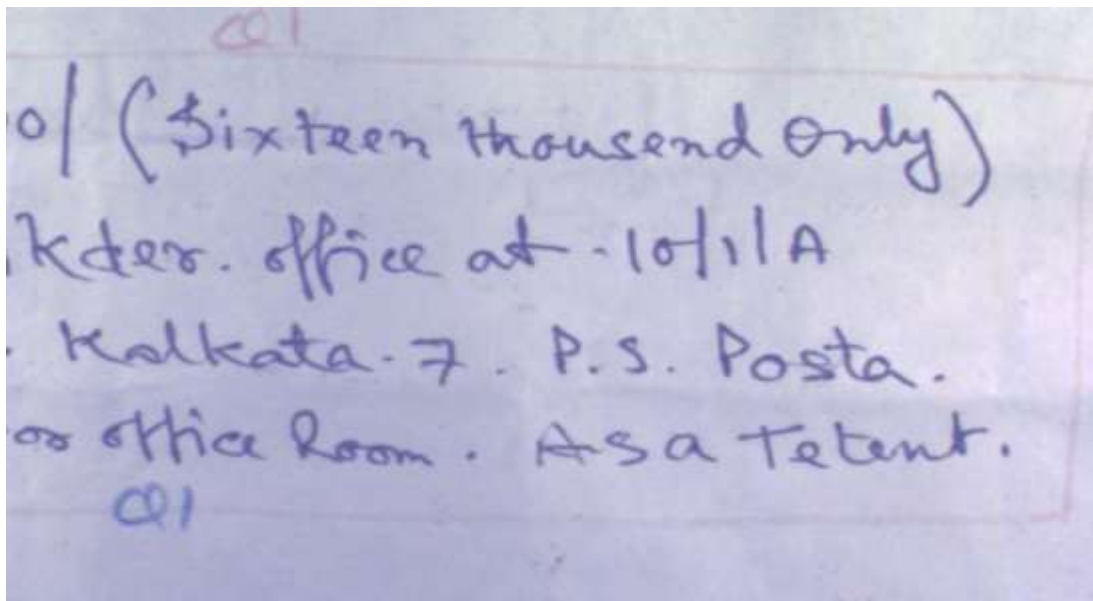 Q1
0/ (Sixteen thousend only)
kder. office at - 10/1/A
Kolkata - 7. P.S. Posta.
or office Room. As a Tetent.
Q1